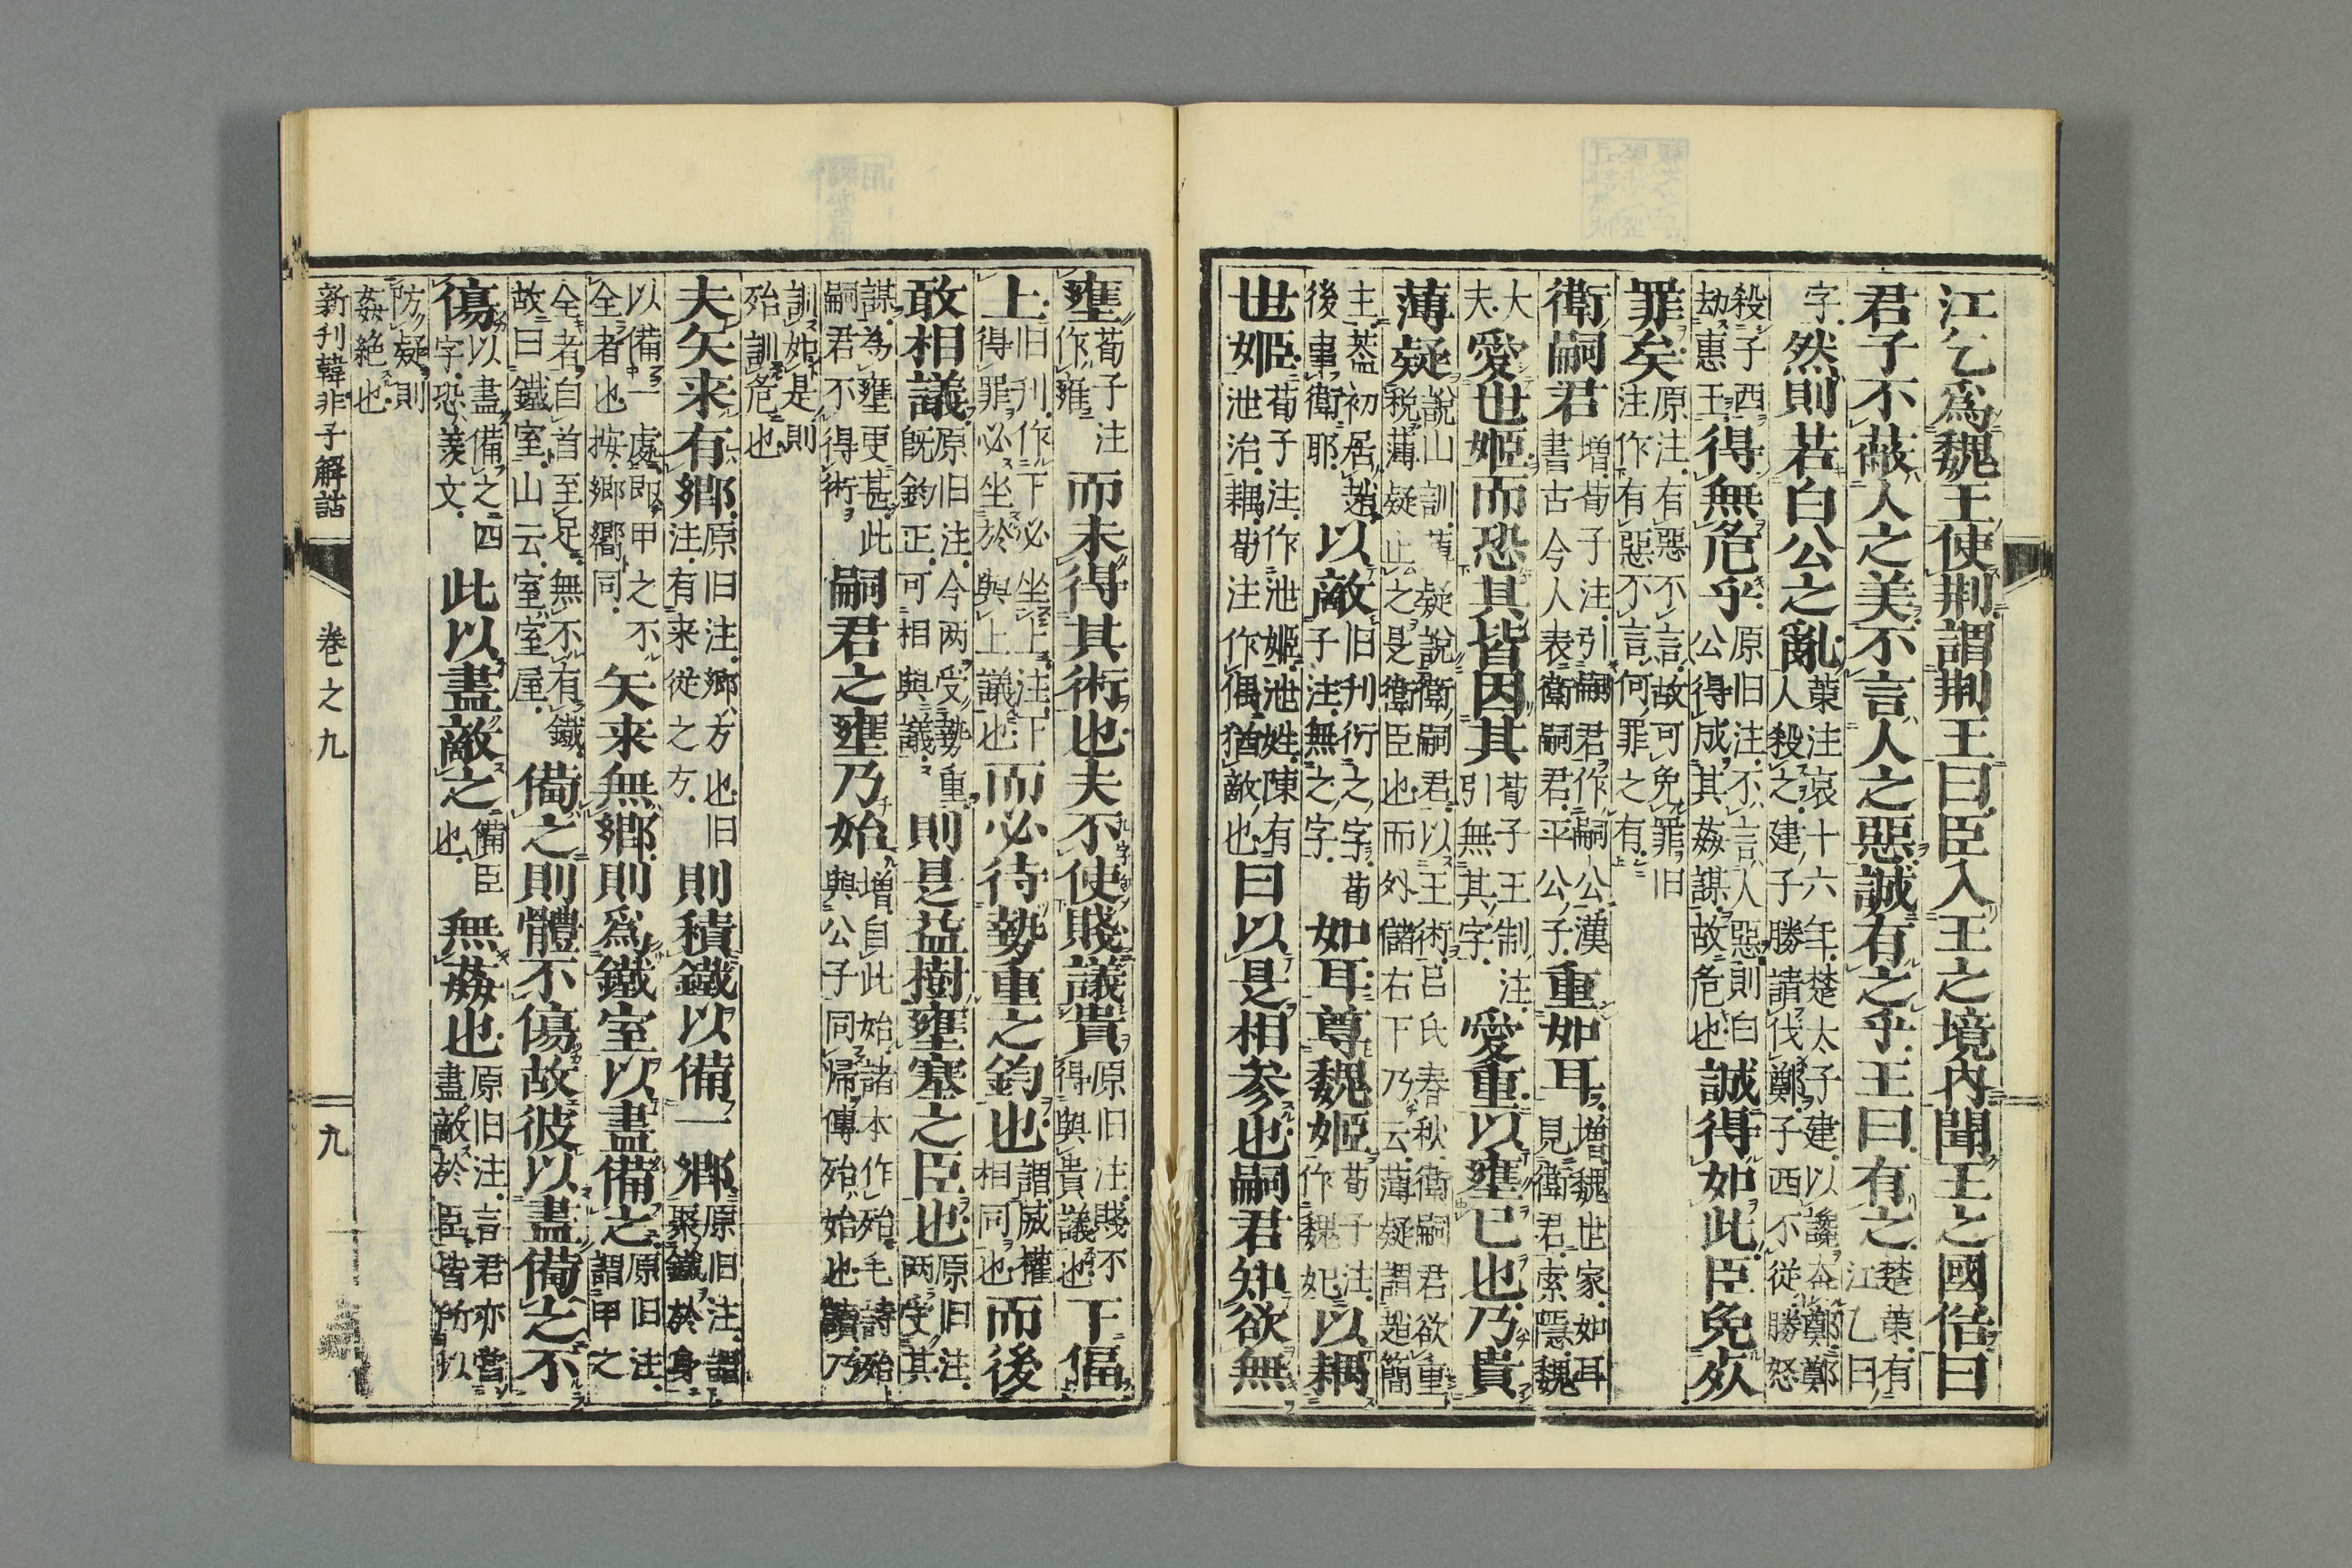 江乞爲魏王使荆謂荆王曰臣入王之境内聞王之國俗曰
君子不蔽人之美不言人之惡誠有之乎王曰有之楚策有江乙曰
字然則若白公之亂策注哀十六年楚太子建以讒奔鄭鄭人殺之建子勝請伐鄭子西不從勝怒
殺子西劫惠王得無危乎原旧注不言人惡則白公得成其姦謀故危也誠得如此臣免死
罪矣原注有惡不言故可免罪旧注作有惡不言何罪之有
衛嗣君増荀子注引嗣君作嗣公漢書古今人表衛嗣君平公子重如耳増魏世家如耳見衛君索隱魏
大夫愛世姬而恐其皆因其荀子王制注引無其字愛重以壅己也乃貴
薄疑說山訓薄疑說衛嗣君以王術呂氏春秋衛嗣君欲重稅薄疑止之是衛臣也而外儲右下乃云薄疑謂趙簡
主蓋初居趙後事衛耶以敵旧刊衍之字荀子注無之字如耳尊魏姬荀子注作魏妃以耦
世姬荀子注作泄姬泄姓陳有泄治耦荀注作偶猶敵也曰以是相参也嗣君知欲無
壅荀子注作雍而未得其術也夫不使賤議貴原旧注賤不得與貴議也下偪
上旧刊作下必坐上注下得罪必坐於與上議也而必待勢重之鈞也謂威權相同也而後
敢相議原旧注今两受勢重既鈞正可相與議則是益樹壅塞之臣也原旧注两受其
謀為壅更甚此嗣君不得術嗣君之壅乃始増自此始諸本作殆毛詩殆與公子同歸傳殆始也讀乃
訓如是則殆訓危也
夫矢来有郷原旧注郷方也旧注有来従之方則積鐵以備一郷原旧注謂聚鐵於身
以備一處即甲之不全者也按郷嚮同矢来無郷則爲鐵室以盡備之原旧注謂甲之
全者自首至足無不有鐵故曰鐵室山云室室屋備之則體不傷故彼以盡備之不
傷以盡備之四字恐羨文此以盡敵之備臣也無姦也原旧注言君亦當盡敵於臣皆所以
防疑則姦絶也
新刊韓非子解詁　卷之九　九